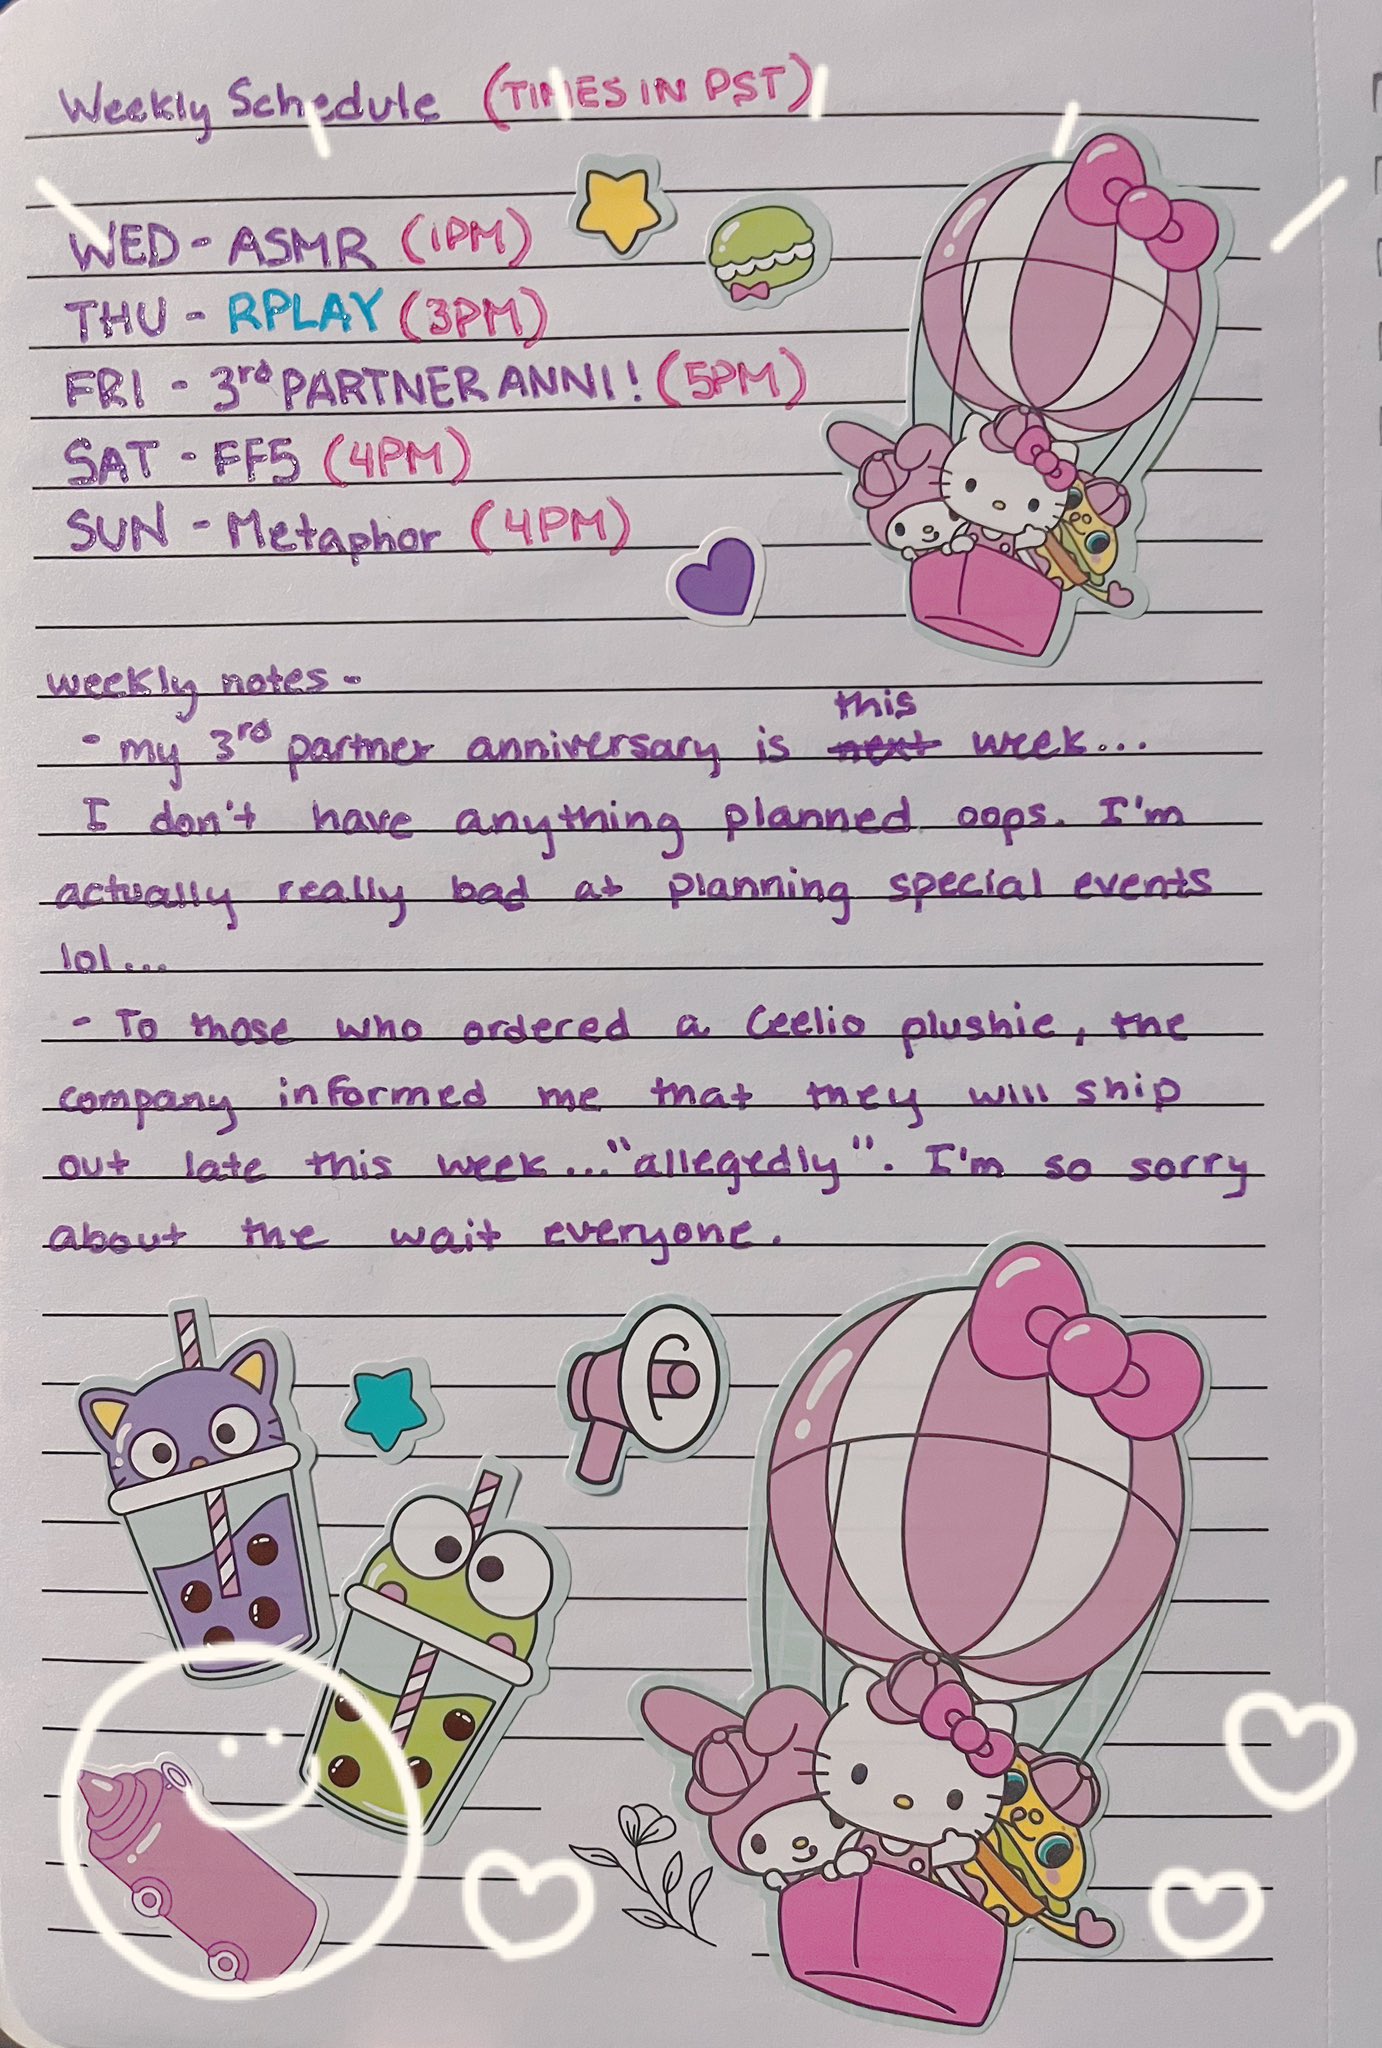 Weekly Schedule (TIMES IN PST)
WED - ASMR (1PM)
THU - RPLAY (3PM)
FRI - 3rd PARTNER ANNI! (5PM)
SAT - FF5 (4PM)
SUN - Metaphor (4PM)
weekly notes -
this
- my 3rd partner anniversary is next week...
I don't have anything planned oops. I'm
actually really bad at planning special events
lol...
- To those who ordered a Ceelio plushie, the
company informed me that they will ship
out late this week..."allegedly". I'm so sorry
about the wait everyone.